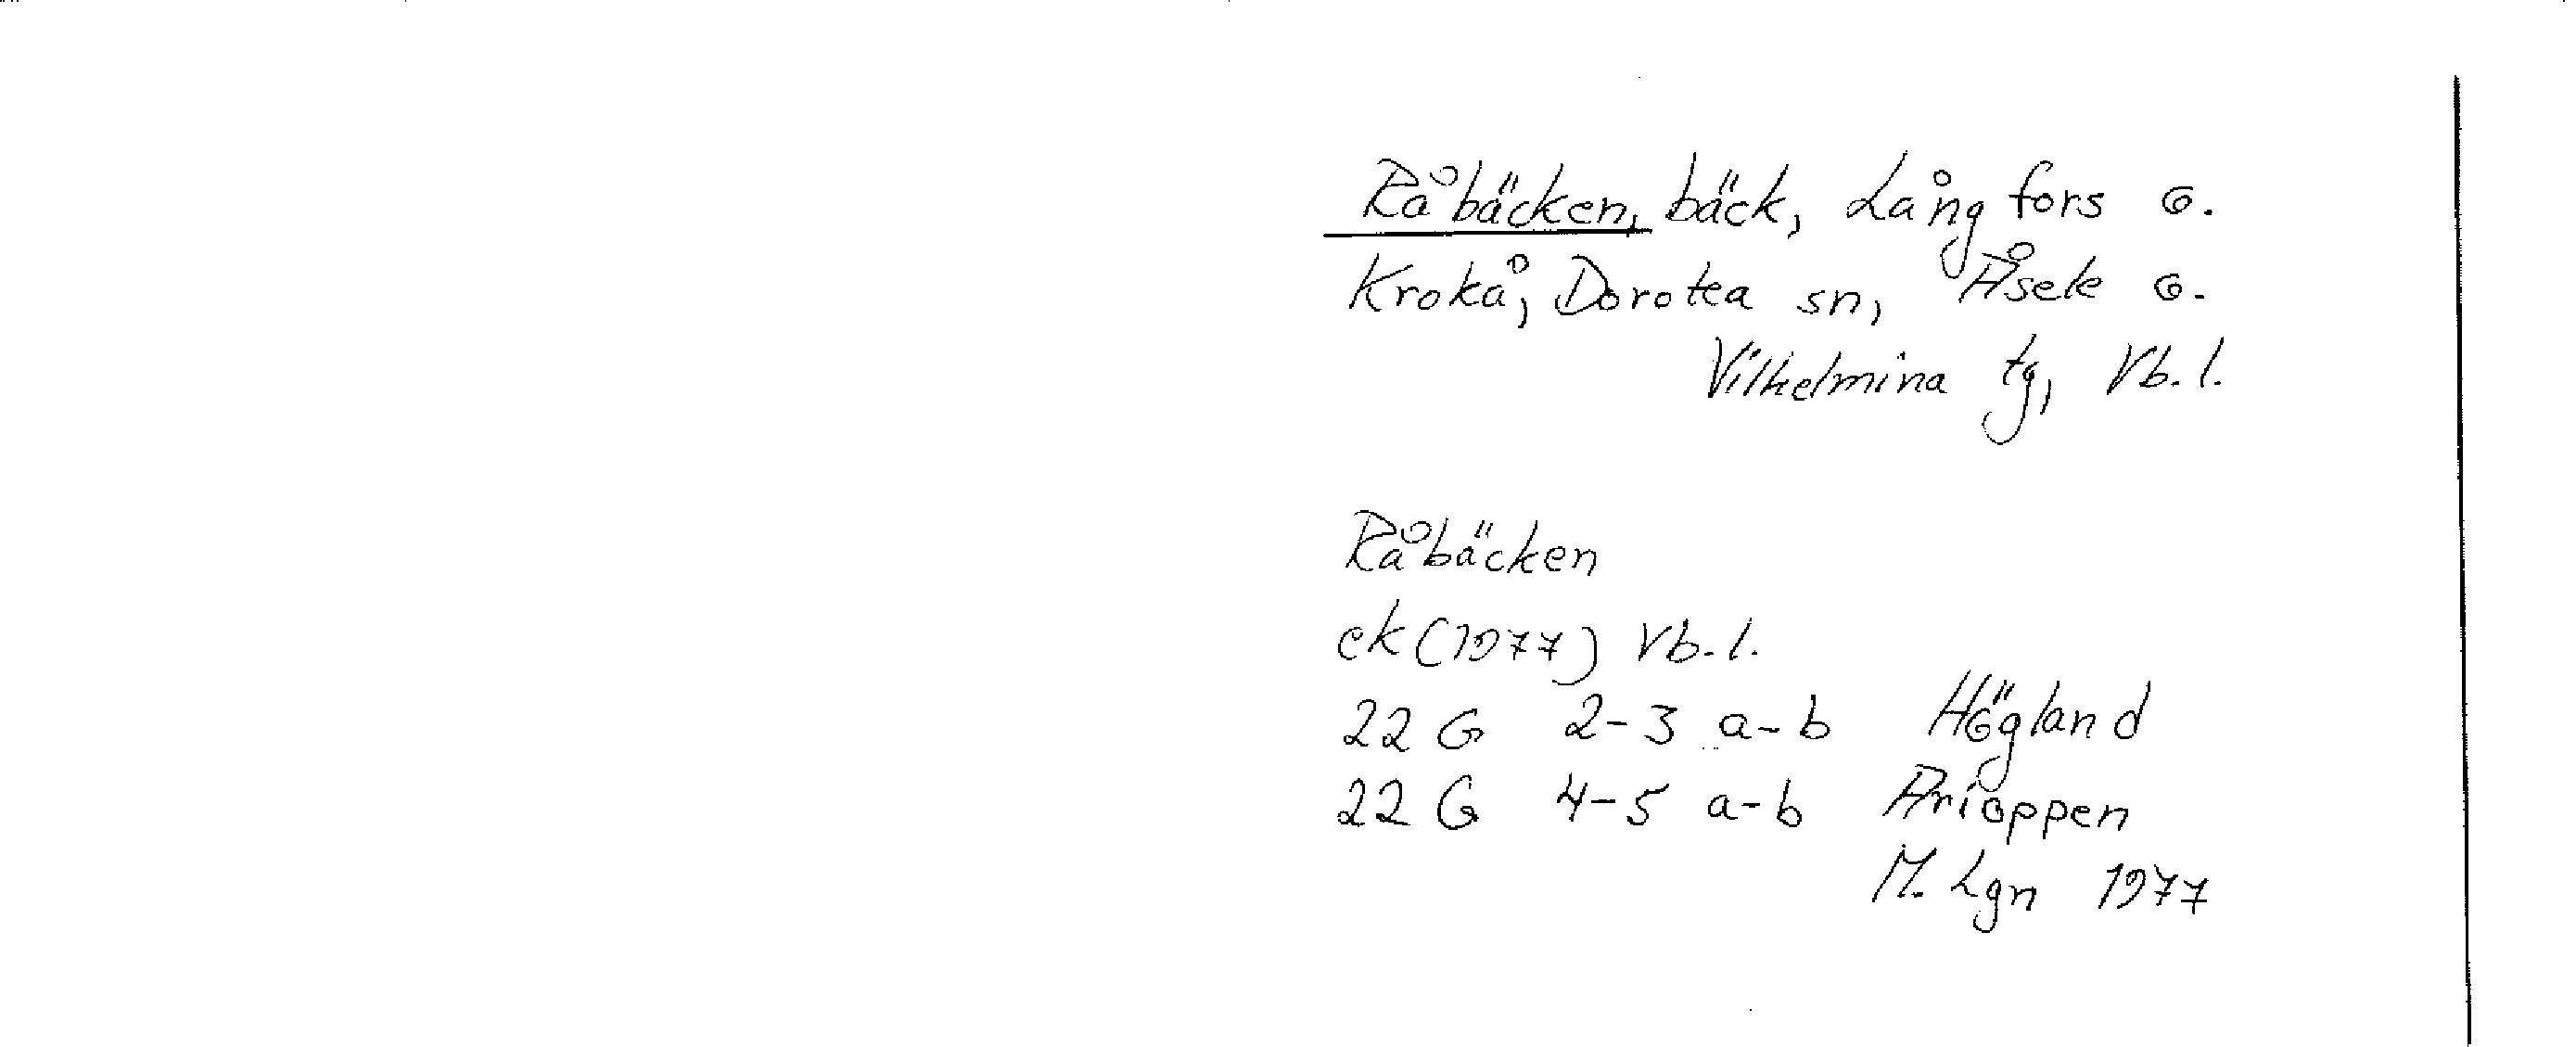 Råbäcken, bäck, Långfors o.
Krokå, Dorotea sn, Åsele o.
Vilhelmina tg, Vb. l.
Råbäcken
ek (1977) Vb. l.
22 G 2-3 a-b Högland
22 G 4-5 a-b Arioppen
M. Lgn 1977